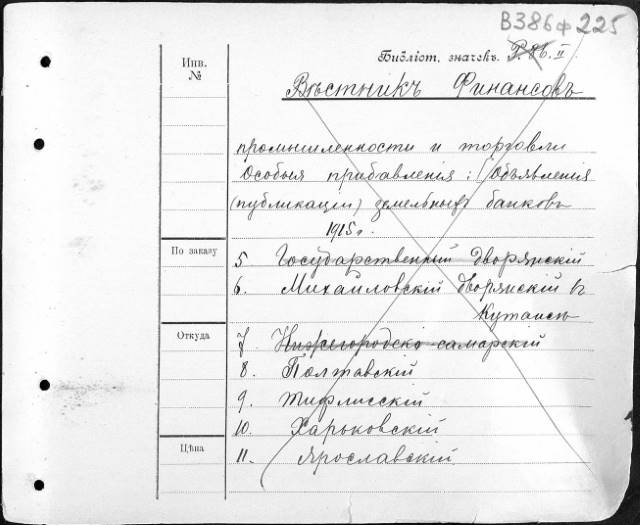 В386ф 225
Инв. №
Библіот. значекъ. Р.86.II.
Вѣстникъ Финансовъ
промышленности и торговли
Особыя прибавленія: (Объявленія
(публикаціи) земельныхъ банковъ
1915 г.
По заказу
5 Государственный Дворянскій
6. Михайловскій дворянскій въ
Кутаисѣ
Откуда
7. Нижегородско-самарскій
8. Полтавскій
9. Тифлисскій
10. Харьковскій
Цѣна
11. Ярославскій